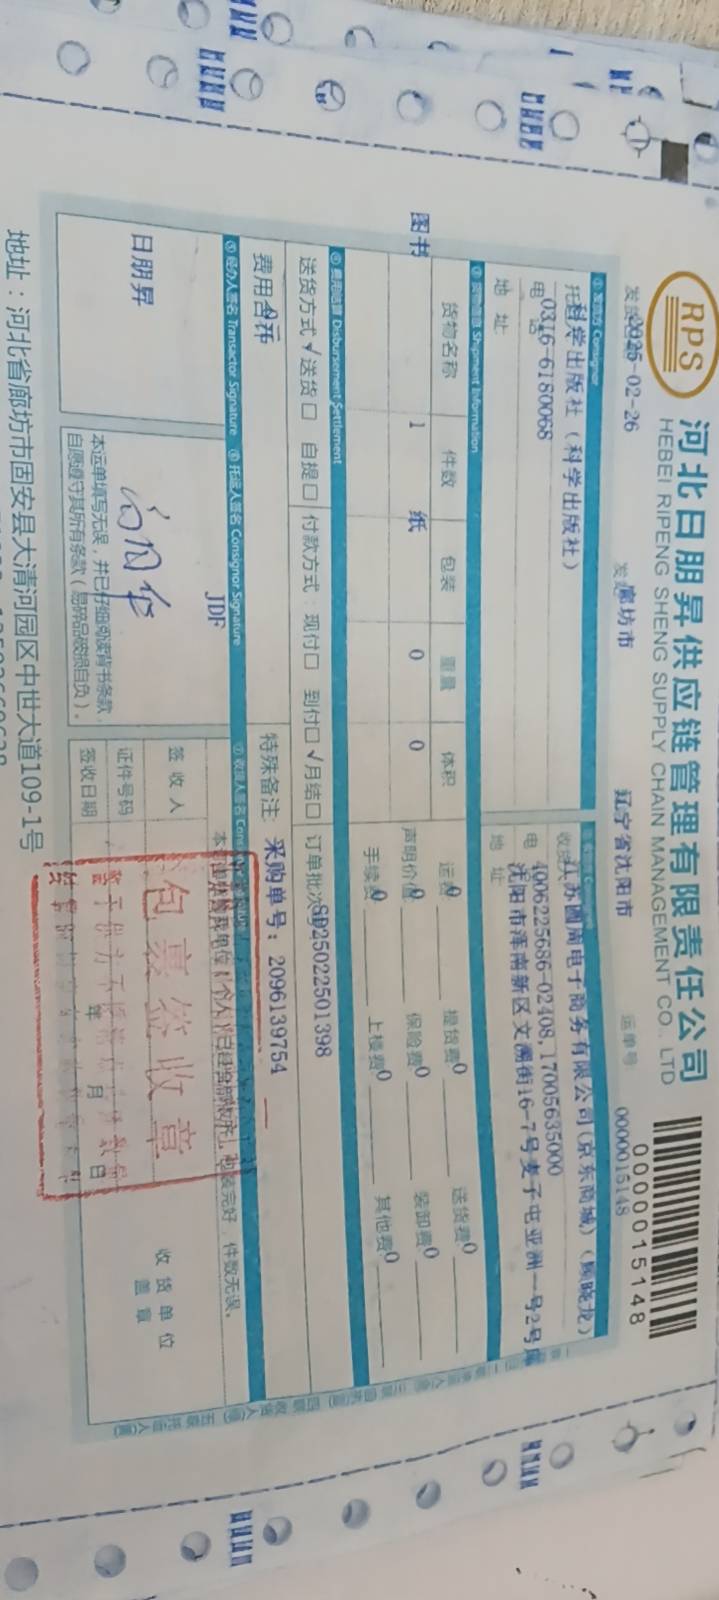 RPS
河北日朋昇供应链管理有限责任公司
HEBEI RIPENG SHENG SUPPLY CHAIN MANAGEMENT CO., LTD
0000015148
2025-02-26
廊坊市
辽宁省沈阳市
运单号
0000015148
① 发货方 Consignor
科学出版社（科学出版社）
电话
0316-6180068
地 址
江苏圆周电子商务有限公司(京东商城)
电
4006225686-02408,17005635000
地 址
沈阳市浑南新区文溯街16-7号麦子屯亚洲一号2号库
③ 货物信息 Shipment Information
货物名称 件数 包装 重量 体积
图书 1 纸 0 0
运费0 提货费0 送货费0
声明价值0 保险费0 装卸费0
手续费0 上楼费0 其他费0
④ 费用结算 Disbursement Settlement
送货方式 √送货□ 自提□ 付款方式：现付□ 到付□ √月结□ 订单批次 SD25022501398
费用合计
特殊备注： 采购单号：2096139754
JDF
⑤ 经办人签名 Transactor Signature
⑥ 托运人签名 Consignor Signature
日朋昇
本运单填写无误，并已仔细阅读背书条款，
自愿遵守其所有条款（易碎品破损自负）。
包装完好，件数无误。
签 收 人
证件号码
签收日期
年 月 日
收货单位
盖 章
包裹签收章
地址：河北省廊坊市固安县大清河园区中世大道109-1号